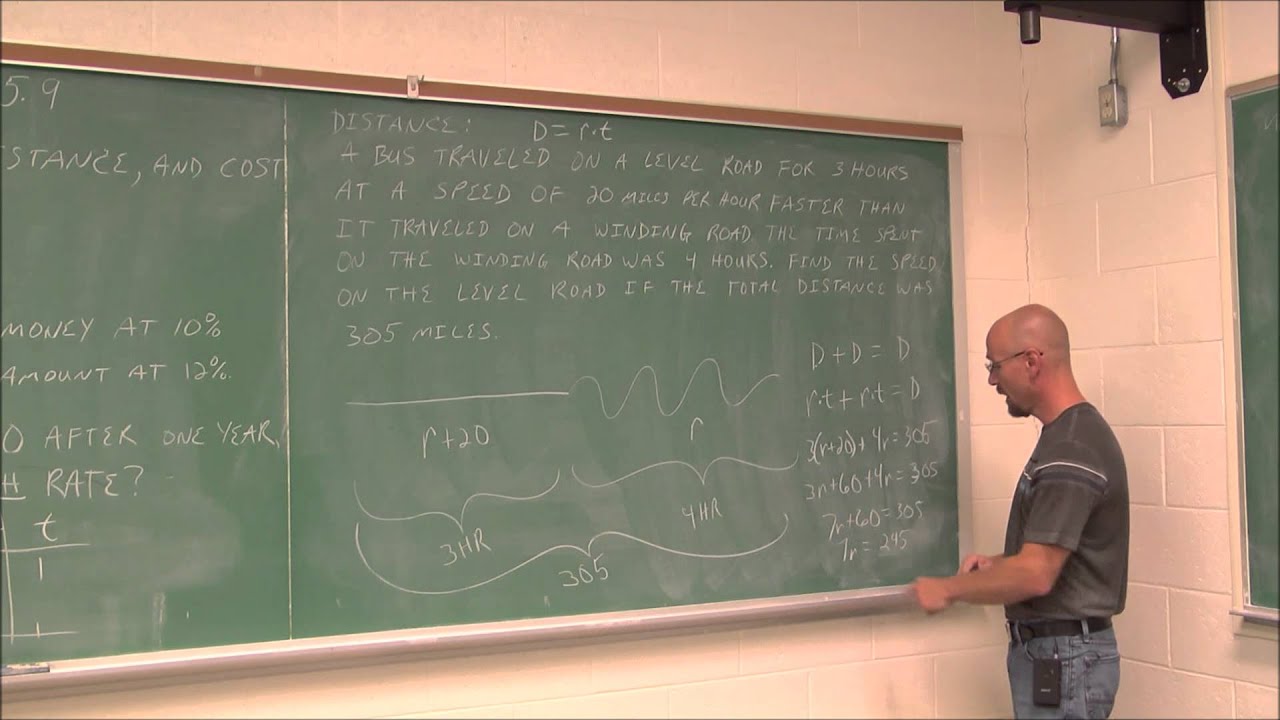 5.9
STANCE, AND COST
MONEY AT 10%
AMOUNT AT 12%.
0 AFTER ONE YEAR,
H RATE?
t
1
DISTANCE: D=r·t
A BUS TRAVELED ON A LEVEL ROAD FOR 3 HOURS
AT A SPEED OF 20 MILES PER HOUR FASTER THAN
IT TRAVELED ON A WINDING ROAD THE TIME SPENT
ON THE WINDING ROAD WAS 4 HOURS. FIND THE SPEED
ON THE LEVEL ROAD IF THE TOTAL DISTANCE WAS
305 MILES.
r+20
r
3HR
4HR
305
D+D=D
r·t+r·t=D
3(r+20)+4r=305
3r+60+4r=305
7r+60=305
7r=245